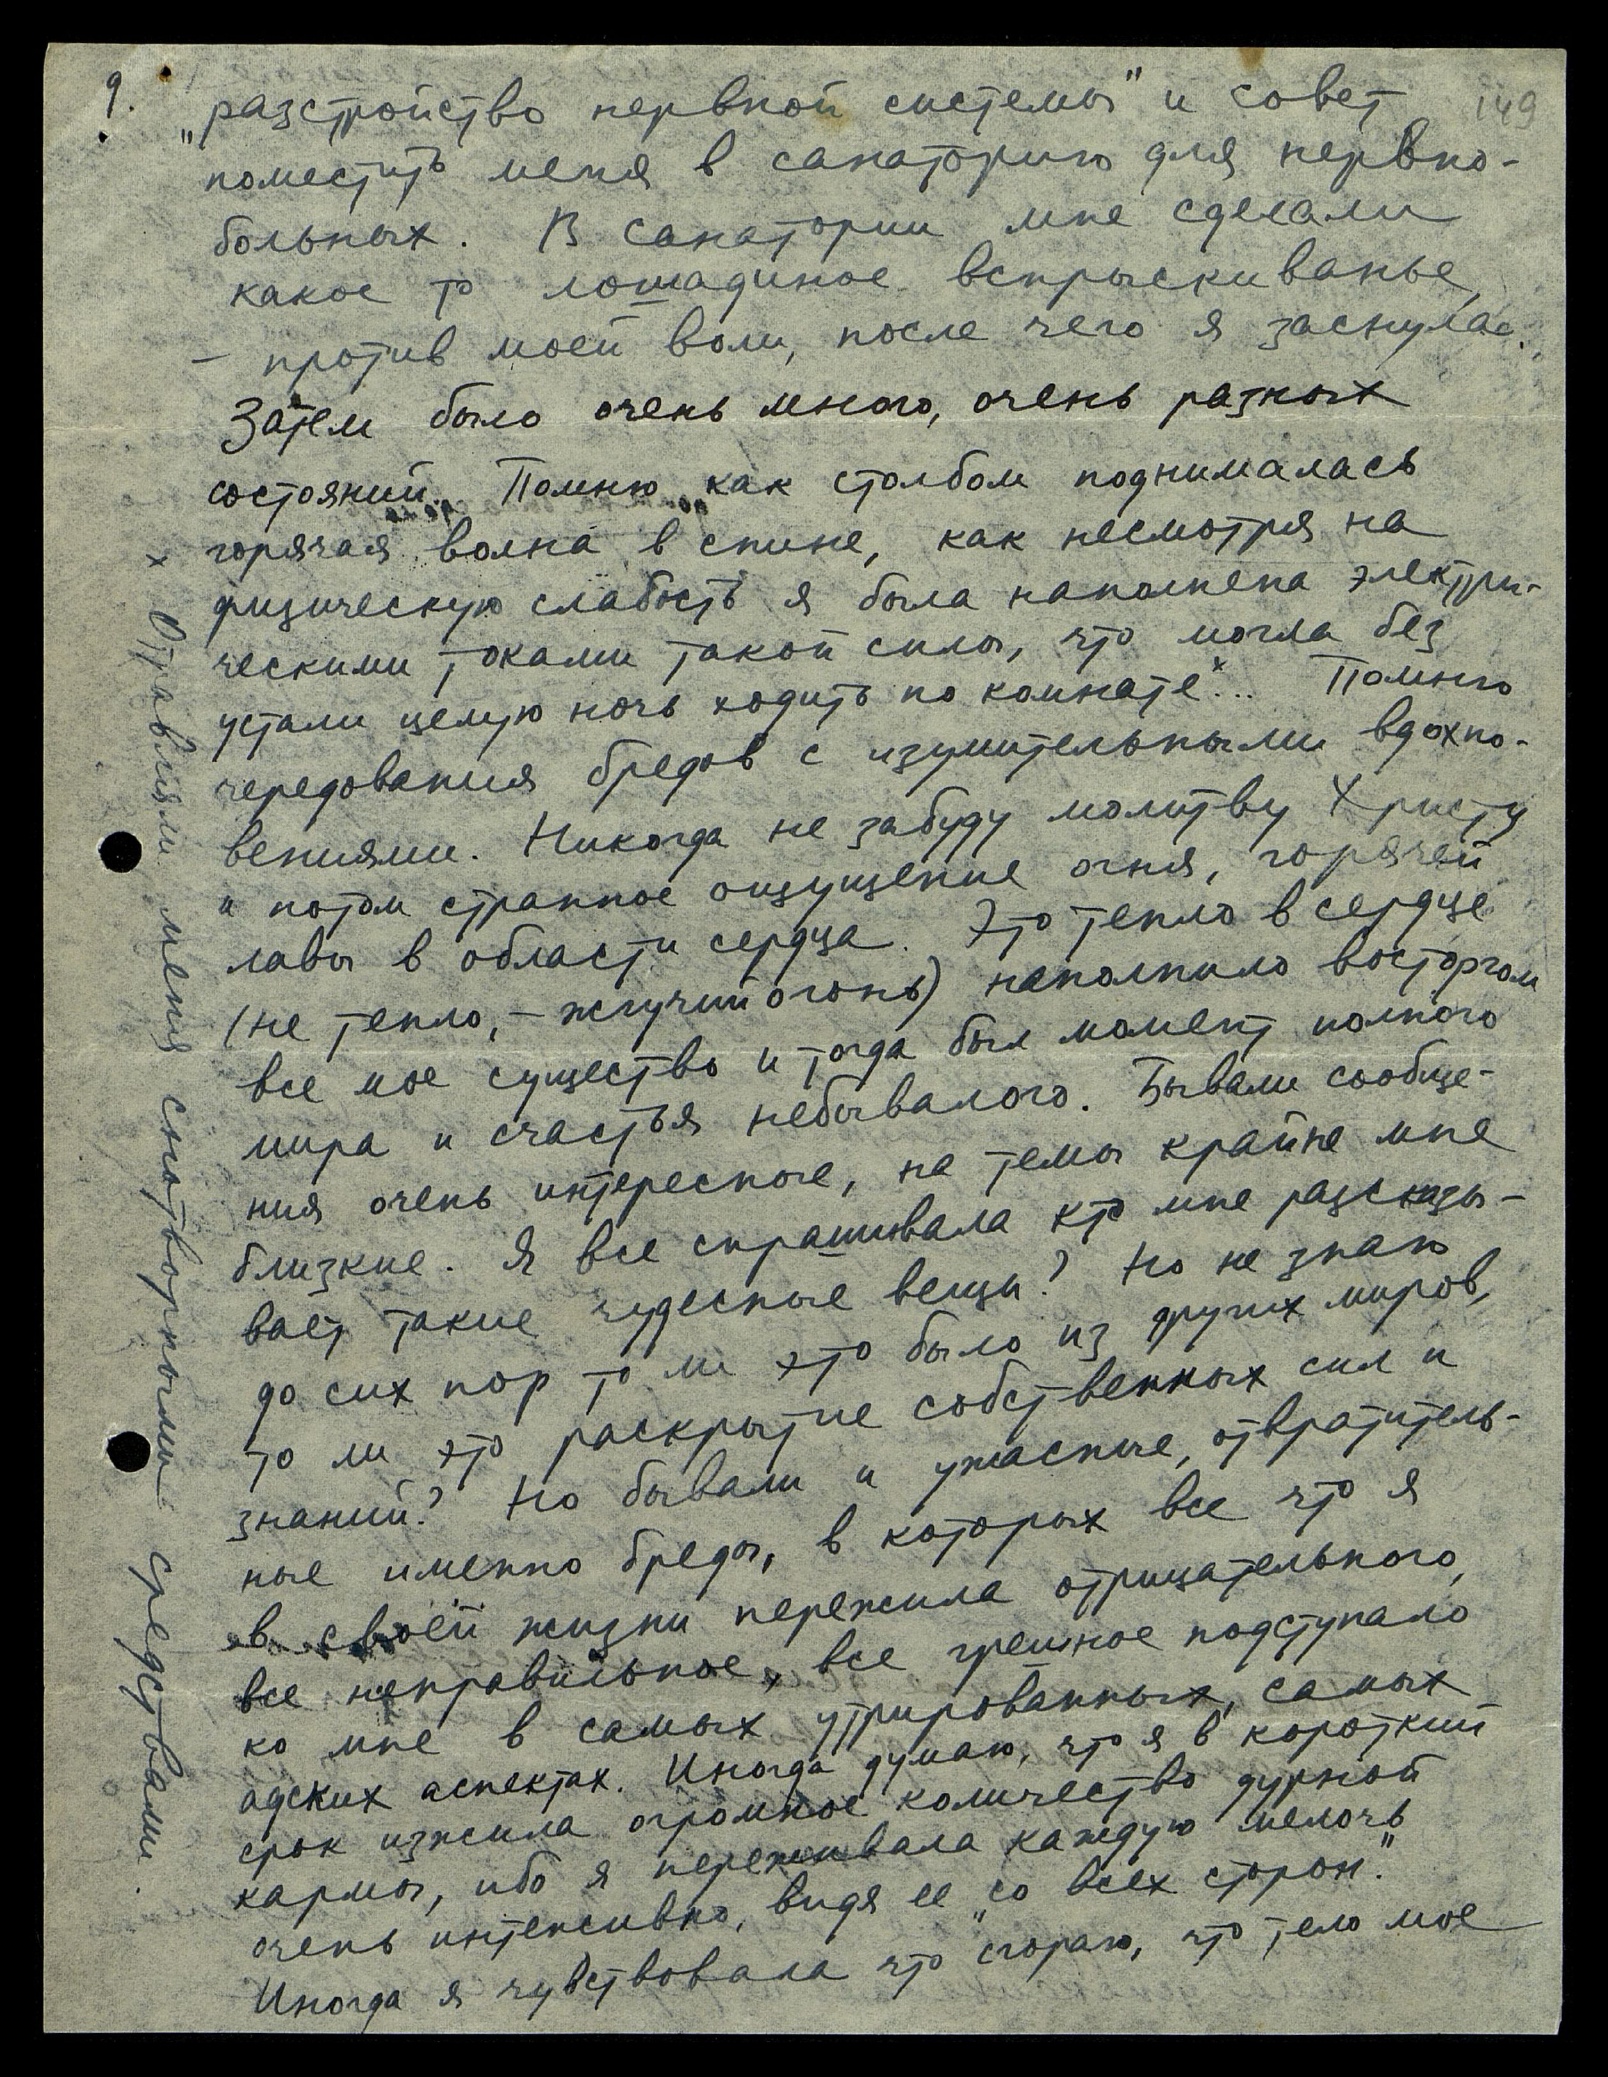 9.
149
„разстройство нервной системы" и совет
поместить меня в санаторию для нервно-
больных. В санатории мне сделали
какое то лошадиное вспрыскиванье,
– против моей воли, после чего я заснула.
Затем было очень много, очень разных
состояний. Помню как столбом поднималась
горячая волна в спине, как несмотря на
физическую слабость я была наполнена электри-
ческими токами такой силы, что могла без
устали целую ночь ходить по комнате.ˣ.. Помню
чередования бредов с изумительными вдохно-
вениями. Никогда не забуду молитву Христу
и потом странное ощущение огня, горячей
лавы в области сердца. Это тепло в сердце
(не тепло, – жгучий огонь) наполнило восторгом
все мое существо и тогда был момент полного
мира и счастья небывалого. Бывали сообще-
ния очень интересные, на темы крайне мне
близкие. Я все спрашивала кто мне разсказы-
вает такие чудесные вещи? Но не знаю
до сих пор то ли это было из других миров,
то ли это раскрытие собственных сил и
знаний? Но бывали и ужасные, отвратитель-
ные именно бреды, в которых все что я
в своей жизни пережила отрицательного,
все неправильное, все грешное подступало
ко мне в самых утрированных, самых
адских аспектах. Иногда думаю, что я в короткий
срок изжила огромное количество дурной
кармы, ибо я переживала каждую мелочь
очень интенсивно, видя ее „со всех сторон."
Иногда я чувствовала что сгораю, что тело мое
х Отравляли меня снотворными средствами.